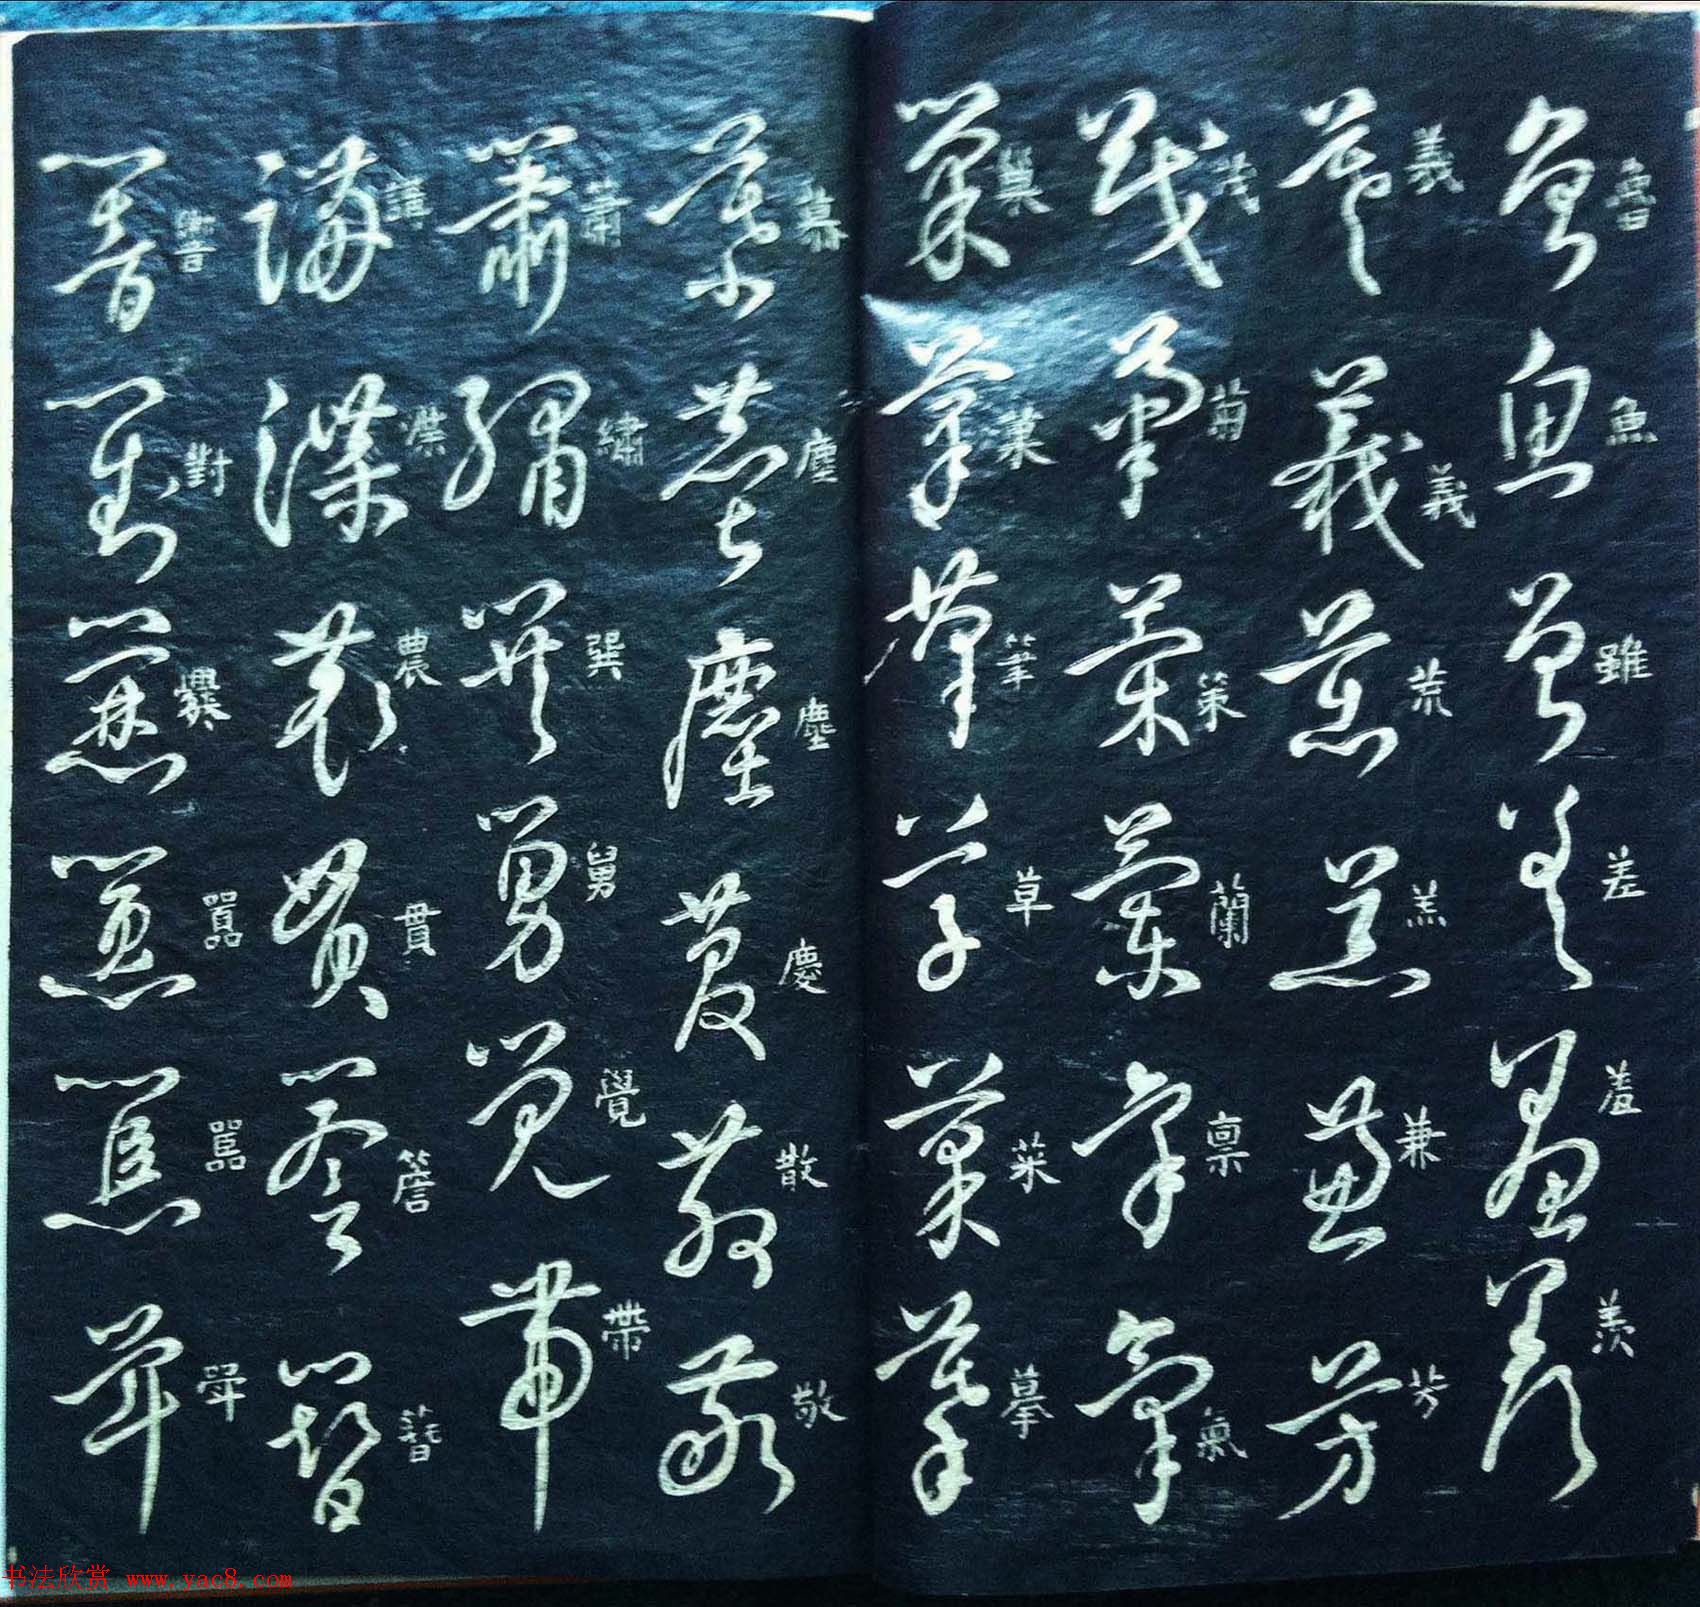 魯魚雖差羞羨
義義荒羔兼芳
茂菊策蘭禀氣
巢菓筆草菜摹
慕塵塵慶散敬
肅繡巽舅覺帶
講濮農貫詹簪
對爨囂囂斝
书法欣赏 www.yac8.com